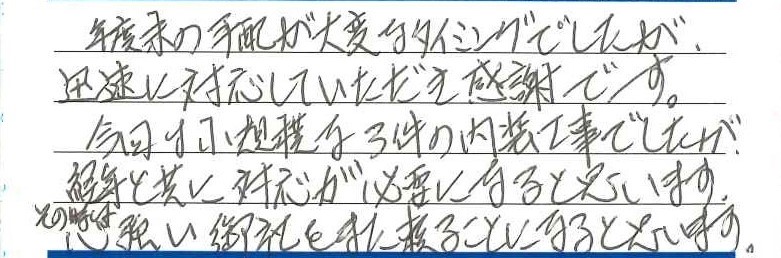 年度末の手配が大変なタイミングでしたが、
迅速に対応していただき感謝です。
今回は小規模な3件の内装工事でしたが
経年と共に対応が必要になると思います。
その時は
心強い御社をまた頼ることになると思います。